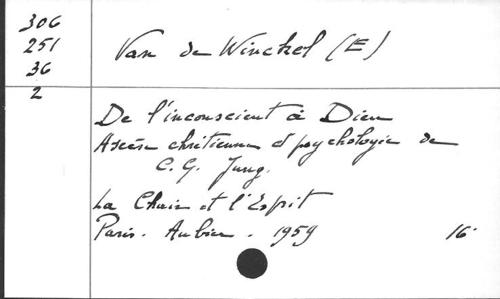 306
251
36
2
Van de Winckel (E)
De l'inconscient à Dieu
Ascèse chrétienne et psychologie de
C.G. Jung.
La Chair et l'Esprit
Paris. Aubier. 1959 16°